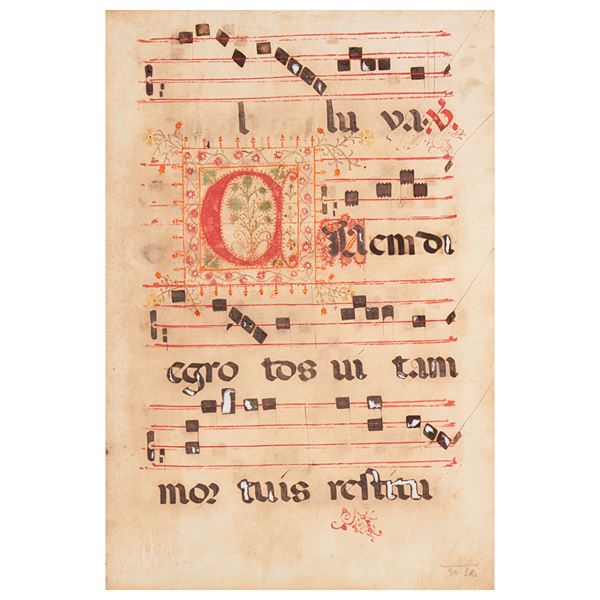 l lu v.a. ℣.
O Nem di
egro tos ui tam
mor tuis restitu